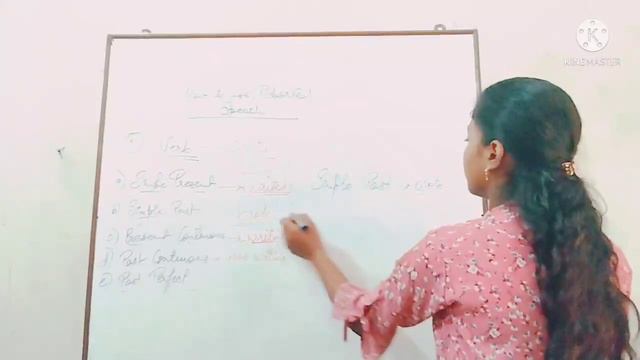 How to use Reported
Speech
Verb
Simple Present - writes Simple Past - wrote
Simple Past
c) Present Continuous
d) Past Continuous - was writing
e) Past Perfect
KINEMASTER